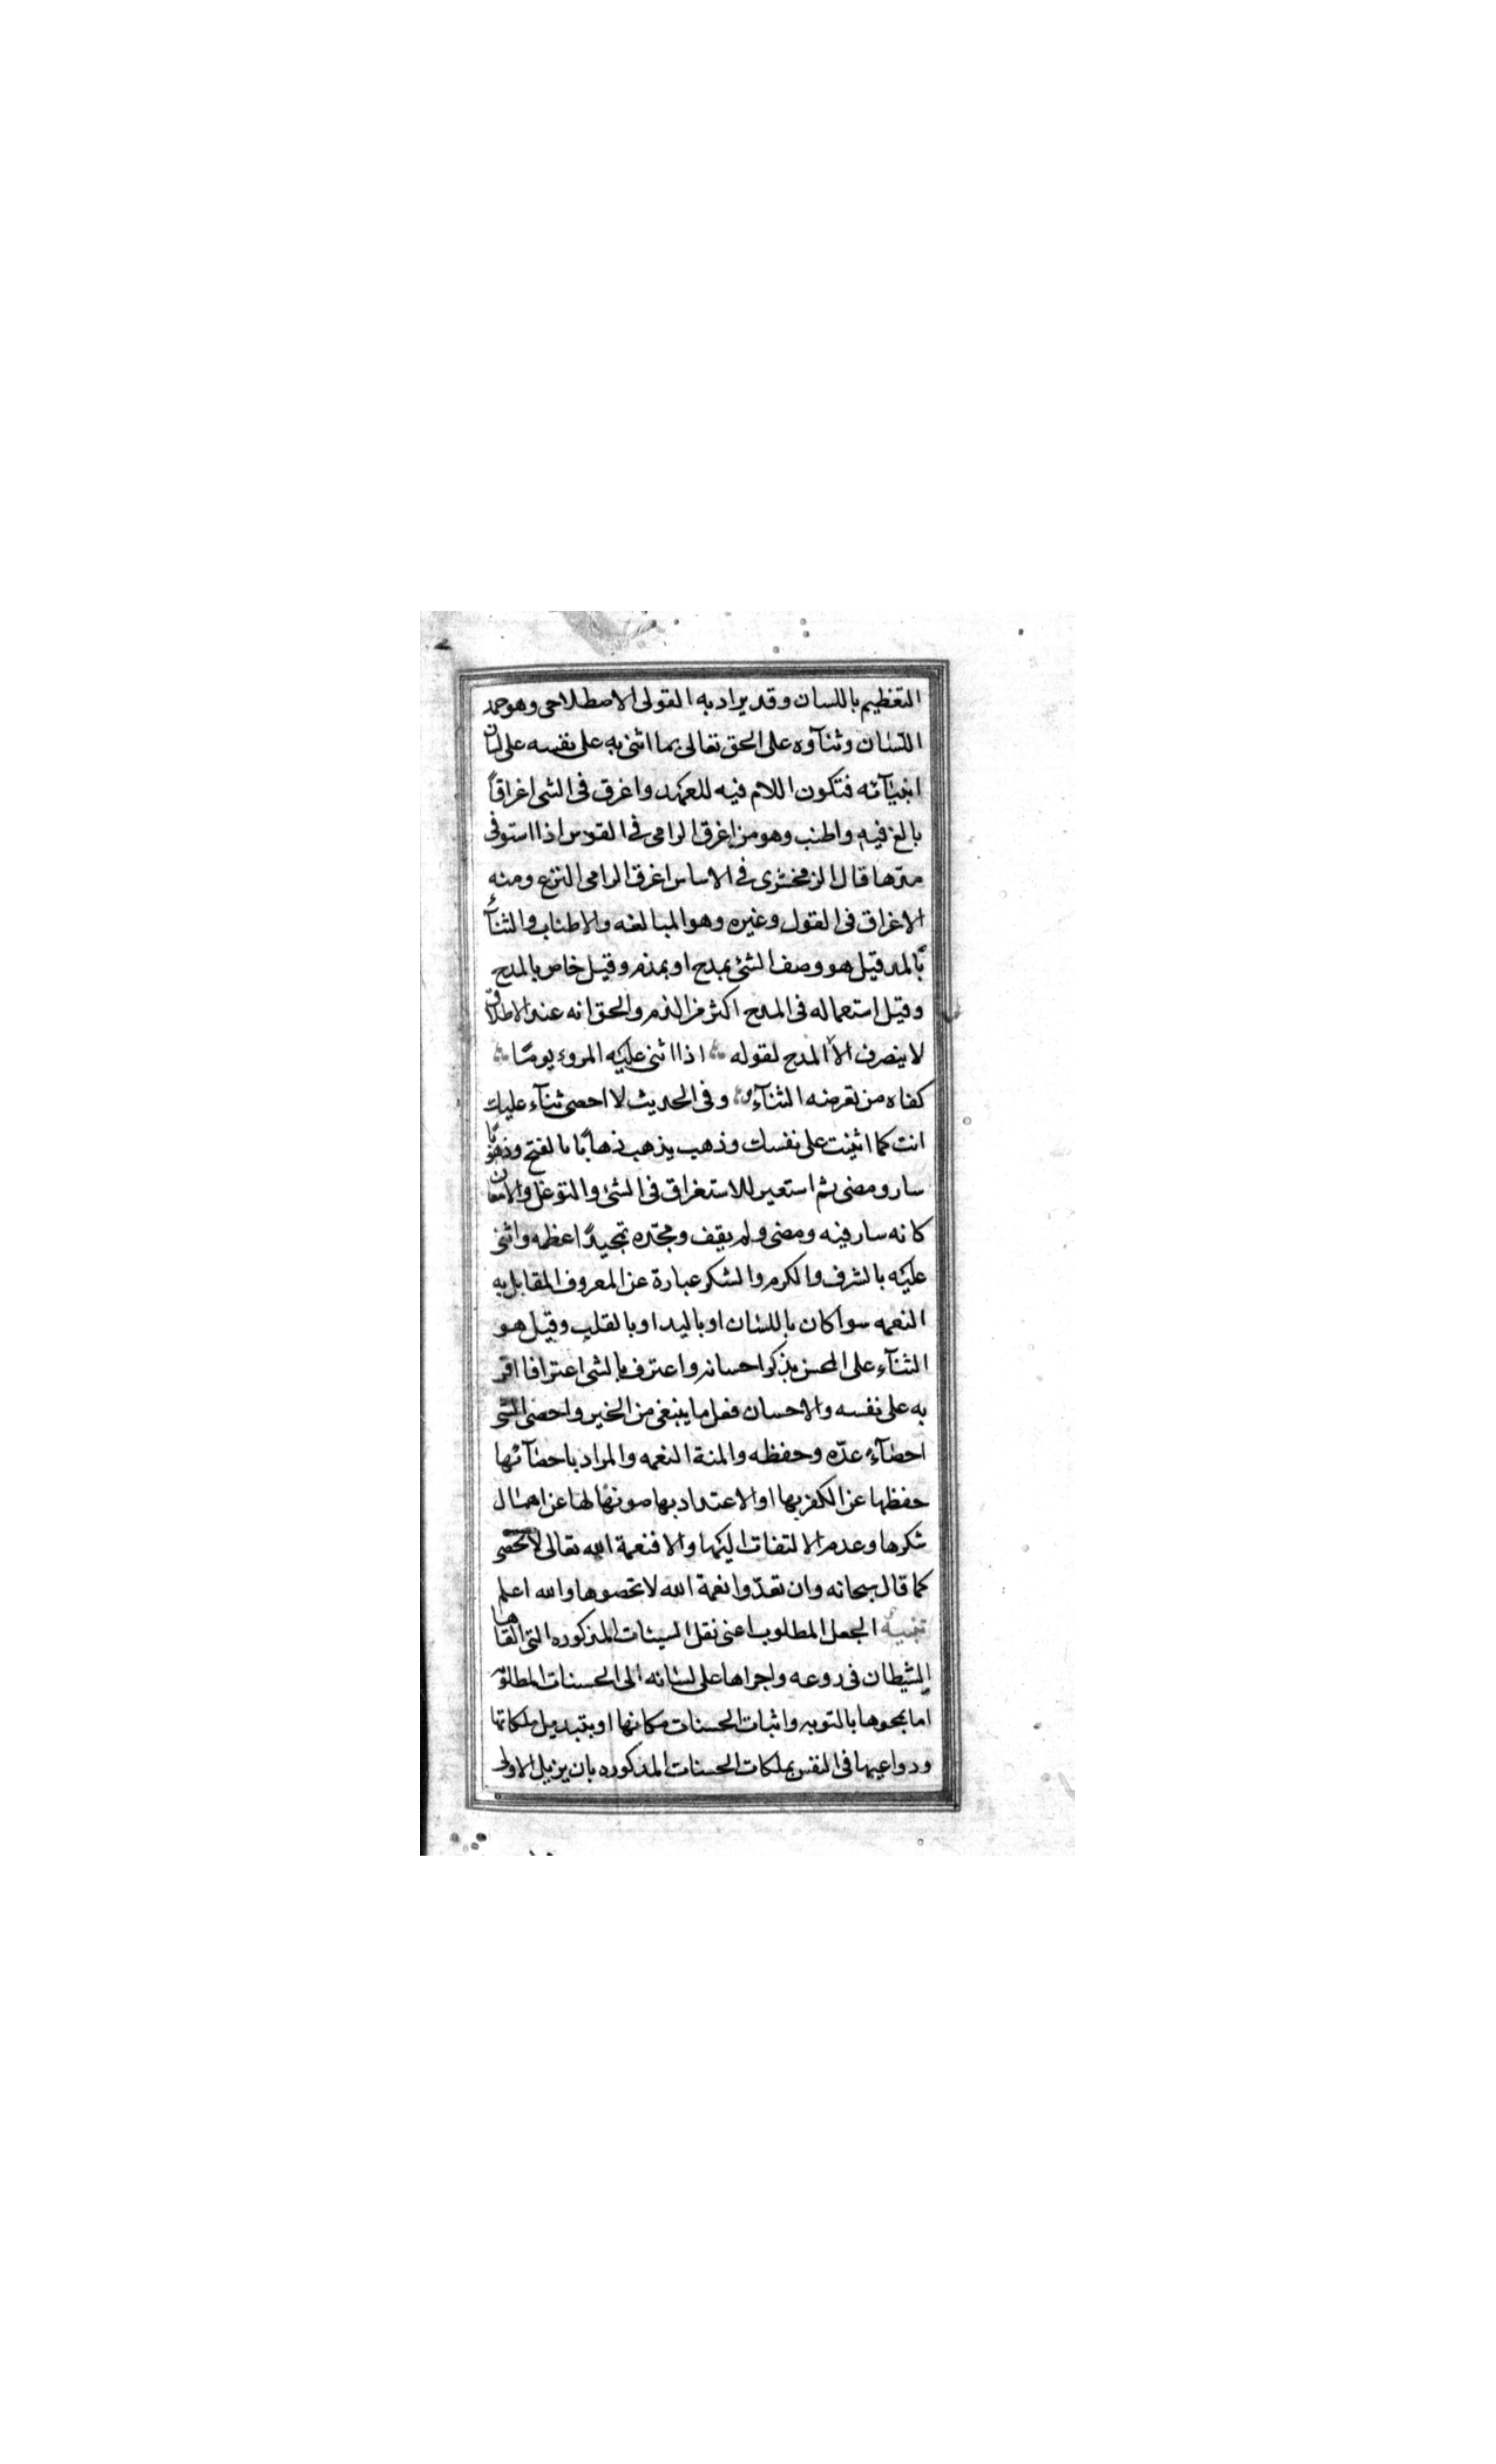 التعظيم باللسان وقد يراد به القولى الاصطلاحى وهو حمد
اللسان وثنآوه على الحق تعالى بما اثنى به على نفسه على لسان
انبيآئه فتكون اللام فيه للعهد واغرق فى الشى اغراقاً
بالغ فيه واطنب وهو من اغرق الرامى فى القوس اذا استوفى
مدّها قال الزمخشرى فى الاساس اغرق الرامى النزع ومنه
الاغراق فى القول وغيره وهو المبالغه والاطناب والثنآء
بالمد قيل هو وصف الشئ بمدح او بمذم وقيل خاص بالمدح
وقيل استعماله فى المدح اكثر من الذم والحق انه عند الاطلاق
لا ينصرف الا المدح لقوله اذا اثنى عليه المروء يومًا
كفاه من تعرضه الثنآء وفى الحديث لا احصى ثنآء عليك
انت كما اثنيت على نفسك وذهب يذهب ذهابًا بالفتح وذهوبًا
سار ومضى ثم استعير للاستغراق فى الشئ والتوغل والامعان
كانه سار فيه ومضى ولم يقف ومجّده تمجيدًا عظمه واثنى
عليه بالشرف والكرم والشكر عبارة عن المعروف المقابل به
النعمه سوا كان باللسان او باليد او بالقلب وقيل هو
الثنآء على المحسن بذكر احسانه واعترف بالشى اعترافا اقر
به على نفسه والاحسان فعل ما ينبغى من الخير واحصى الشى
احصآءً عدّه وحفظه والمنة النعمه والمراد باحصآئها
حفظها عن الكفر بها او الاعتداد بها صونًا لها عن اهمال
شكرها وعدم الالتفات اليها والا فنعمة الله تعالى لا تحصى
كما قال سبحانه وان تعدّوا نعمة الله لا تحصوها والله اعلم
تنبيه الجعل المطلوب اعنى نقل السيئات المذكوره التى القاها
الشيطان فى روعه واجراها على لسانه الى الحسنات المطلوبه
اما بمحوها بالتوبه واثبات الحسنات مكانها او بتبديل ملكاتها
ودواعيها فى النفس بملكات الحسنات المذكوره بان يزيل الاولى